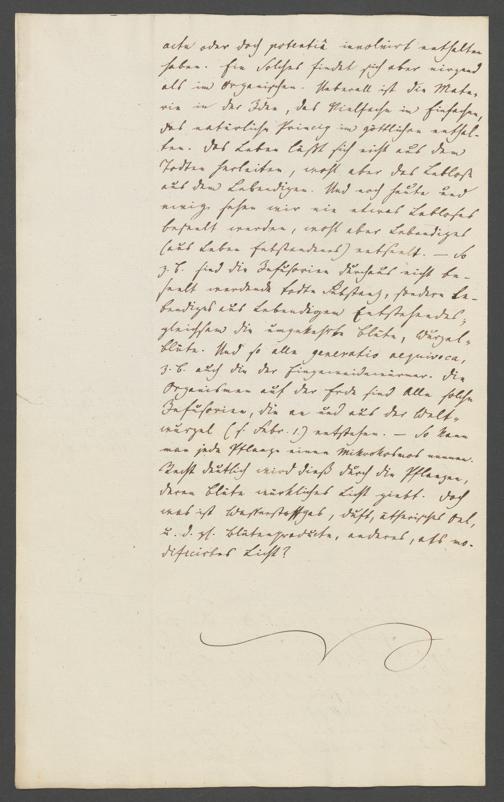 actu oder doch potentiâ involvirt enthalten
haben. Ein solches findet sich aber nirgend
als im Organischen. Ueberall ist die Mate-
rie in der Idee, das Vielfache im Einfachen,
das natürliche Princip im göttlichen enthal-
ten. Das Leben läßt sich nicht aus dem
Todten herleiten, wohl aber das Leblose
aus dem Lebendigen. Und noch heute und
ewig sehen wir nie etwas Lebloses
beseelt werden, wohl aber Lebendiges
(aus Leben Entstandenes) entseelt. — So
z.b. sind die Infusorien durchaus nicht be-
seelt werdende todte Substanz, sondern Le-
bendiges aus Lebendigem Entstehendes;
gleichsam die umgekehrte Blüte, Wurzel-
blüte. Und so alle generatio aequivoca,
z.b. auch die der Eingeweidewürmer. Die
Organismen auf der Erde sind Alle solche
Infusorien, die an und aus der Welt-
wurzel (f. Febr. 1) entstehen. — So kann
man jede Pflanze einen Mikrokosmos nennen.
Recht deutlich wird dieß durch die Pflanzen,
deren Blüte würkliches Licht giebt. Doch
was ist Wasserstoffgas, Duft, ätherisches Oel,
u. d. gl. Blütenproducte, anderes, als mo-
dificirtes Licht?